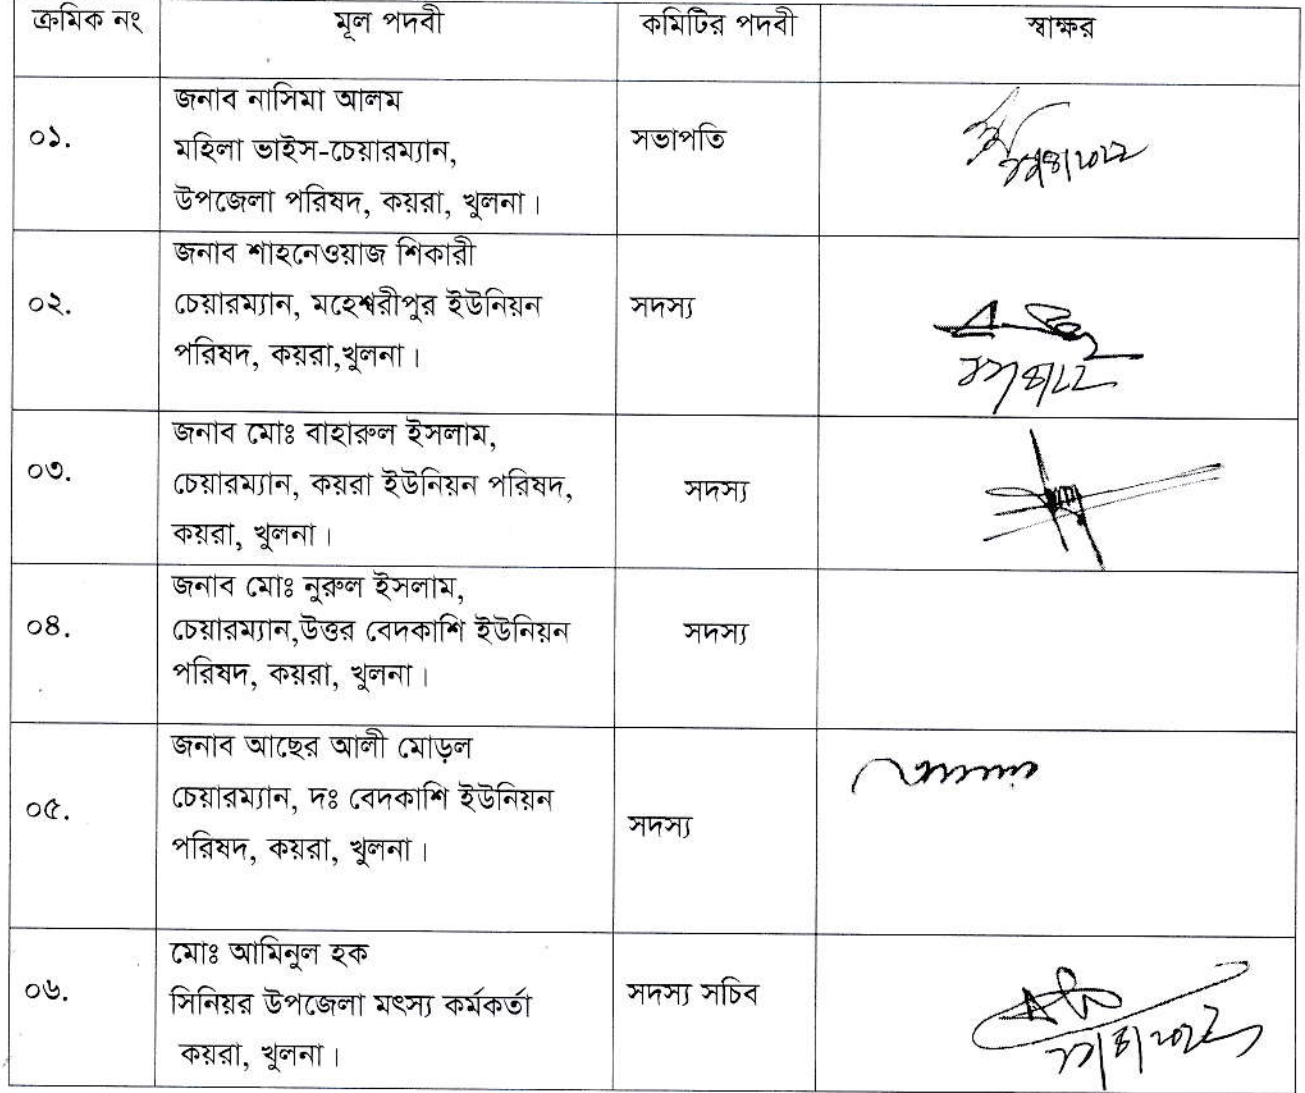 ক্রমিক নং মূল পদবী কমিটির পদবী স্বাক্ষর
০১. জনাব নাসিমা আলম
মহিলা ভাইস-চেয়ারম্যান,
উপজেলা পরিষদ, কয়রা, খুলনা।
সভাপতি
০২. জনাব শাহনেওয়াজ শিকারী
চেয়ারম্যান, মহেশ্বরীপুর ইউনিয়ন
পরিষদ, কয়রা,খুলনা।
সদস্য
০৩. জনাব মোঃ বাহারুল ইসলাম,
চেয়ারম্যান, কয়রা ইউনিয়ন পরিষদ,
কয়রা, খুলনা।
সদস্য
০৪. জনাব মোঃ নুরুল ইসলাম,
চেয়ারম্যান,উত্তর বেদকাশি ইউনিয়ন
পরিষদ, কয়রা, খুলনা।
সদস্য
০৫. জনাব আছের আলী মোড়ল
চেয়ারম্যান, দঃ বেদকাশি ইউনিয়ন
পরিষদ, কয়রা, খুলনা।
সদস্য
০৬. মোঃ আমিনুল হক
সিনিয়র উপজেলা মৎস্য কর্মকর্তা
কয়রা, খুলনা।
সদস্য সচিব